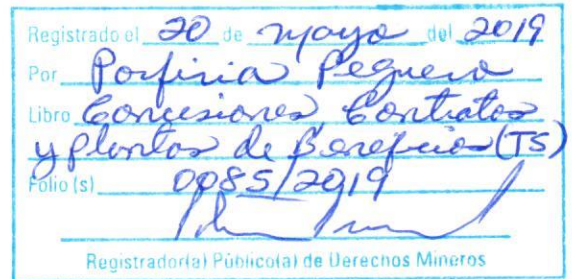 Registrado el 20 de mayo del 2019
Por Porfiria Peguero
Libro Concesiones, Contratos
y Plantas de Beneficios (TS)
Folio (s) 0085/2019
Registrador(a) Público(a) de Derechos Mineros